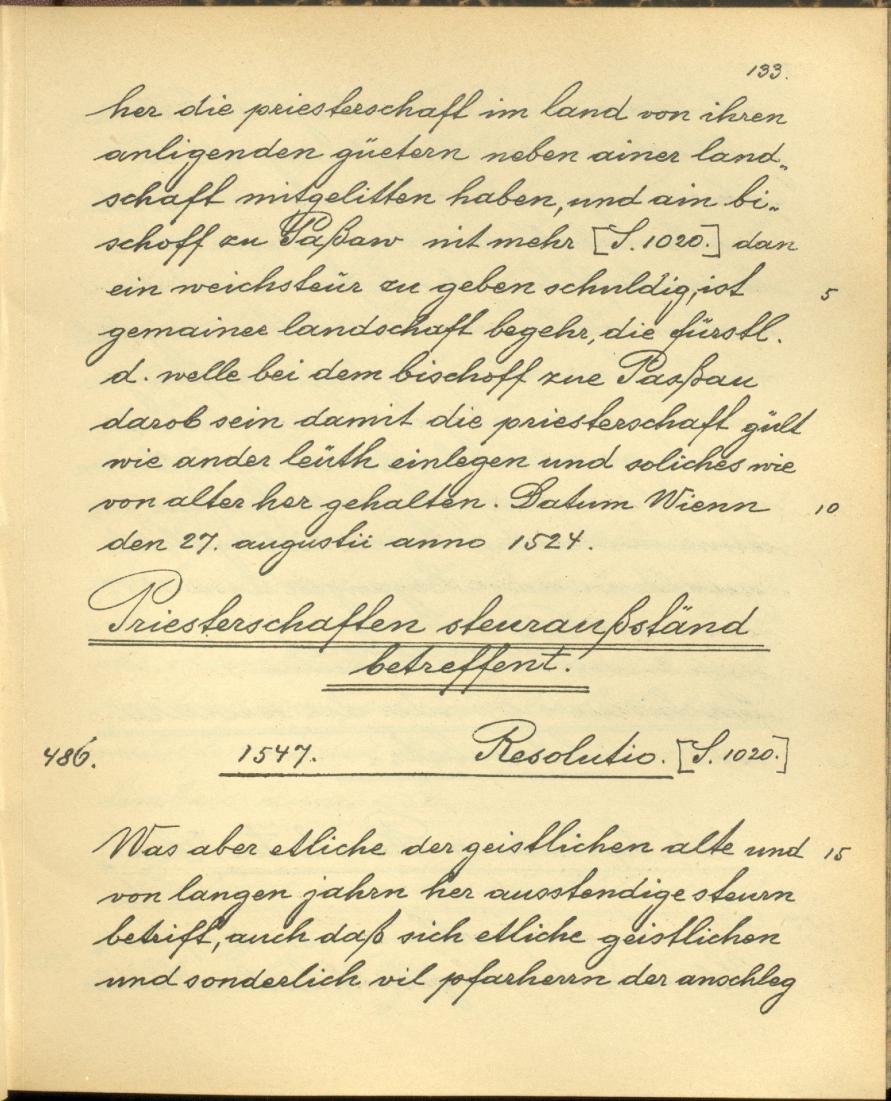 133.
her die priesterschaft im land von ihren
anligenden güetern neben ainer land„
schaft mitgelitten haben, und ain bi„
schoff zu Paßaw nit mehr [S. 1020.] dan
ein weichsteür zu geben schuldig, ist 5
gemainer landschaft begehr, die fürstl.
d. welle bei dem bischoff zue Pasßau
darob sein damit die priesterschaft gült
wie ander leüth einlegen und soliches wie
von alter her gehalten. Datum Wienn 10
den 27. augustii anno 1524.
Priesterschaften steuraußständ
betreffent.
486. 1547. Resolutio. [S. 1020.]
Was aber etliche der geistlichen alte und 15
von langen jahrn her ausstendige steurn
betrift, auch daß sich etliche geistlichen
und sonderlich vil pfarherrn der anschleg